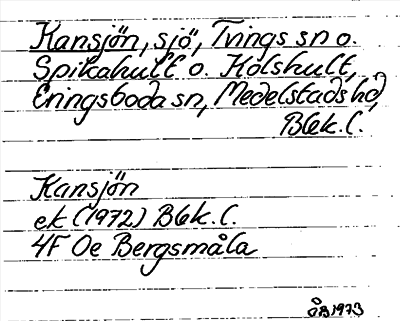 Kansjön, sjö, Tvings sn o.
Spikahult o. Hölshult,
Eringsboda sn, Medelstads hd,
Blek. l.
Kansjön
ek (1972) Blek. l.
4F 0e Bergsmåla
ÅB 1973